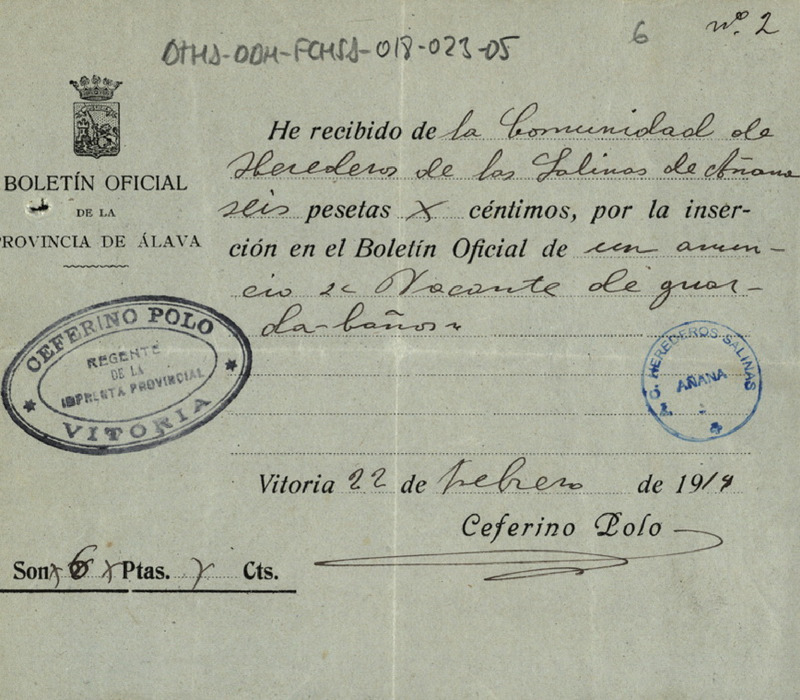 6 nº. 2
OTHA-DDH-FCHSA-018-023-05
BOLETÍN OFICIAL
DE LA
PROVINCIA DE ÁLAVA
He recibido de la Comunidad de
Herederos de las Salinas de Añana
seis pesetas X céntimos, por la inser-
ción en el Boletín Oficial de un anun-
cio Vacante de guar-
da-baños
CEFERINO POLO
REGENTE
DE LA
IMPRENTA PROVINCIAL
VITORIA
C. HEREDEROS SALINAS
AÑANA
Vitoria 22 de Febrero de 19
Ceferino Polo
Son 6 Ptas. Cts.